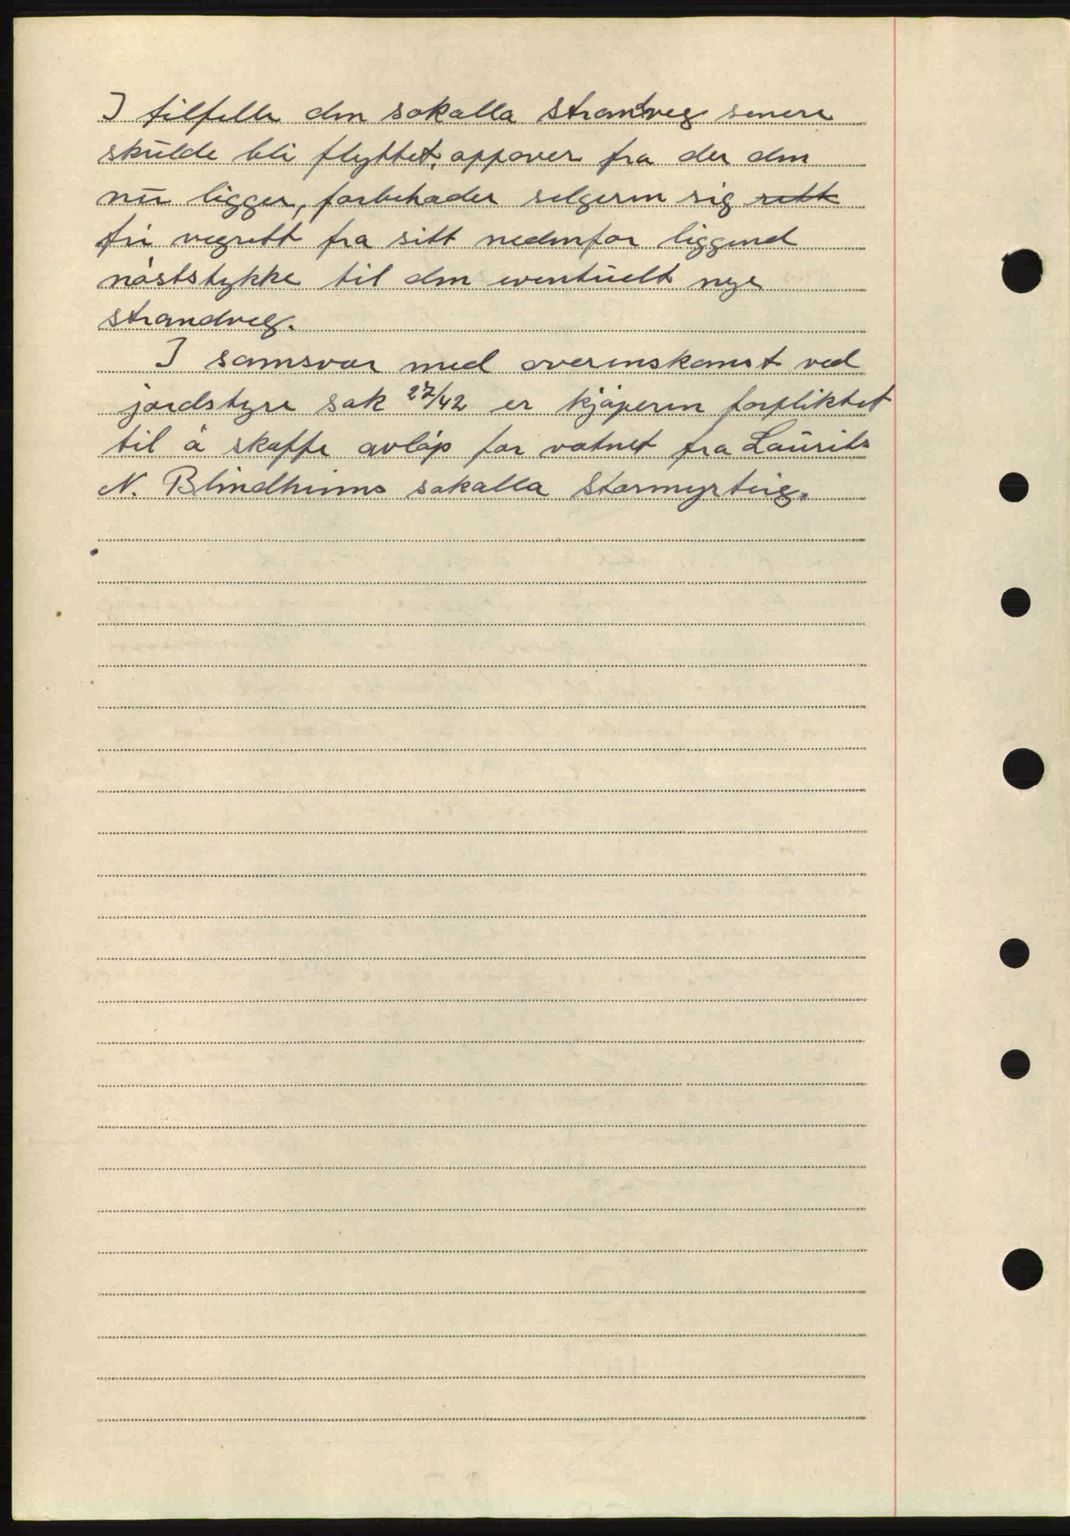 I tilfelle den sokalla strandveg senere
skulde bli flyttet oppover fra der den
nu ligger, forbeholder selgeren sig rett
fri vegrett fra sitt nedenfor liggend
nåststykke til den eventuelt nye
strandveg.
I samsvar med overenskomst ved
jordstyre sak 27/42 er kjøperen forpliktet
til å skaffe avløp for vatnet fra Laurits
N. Blindheims sokalla Stormyrteig.